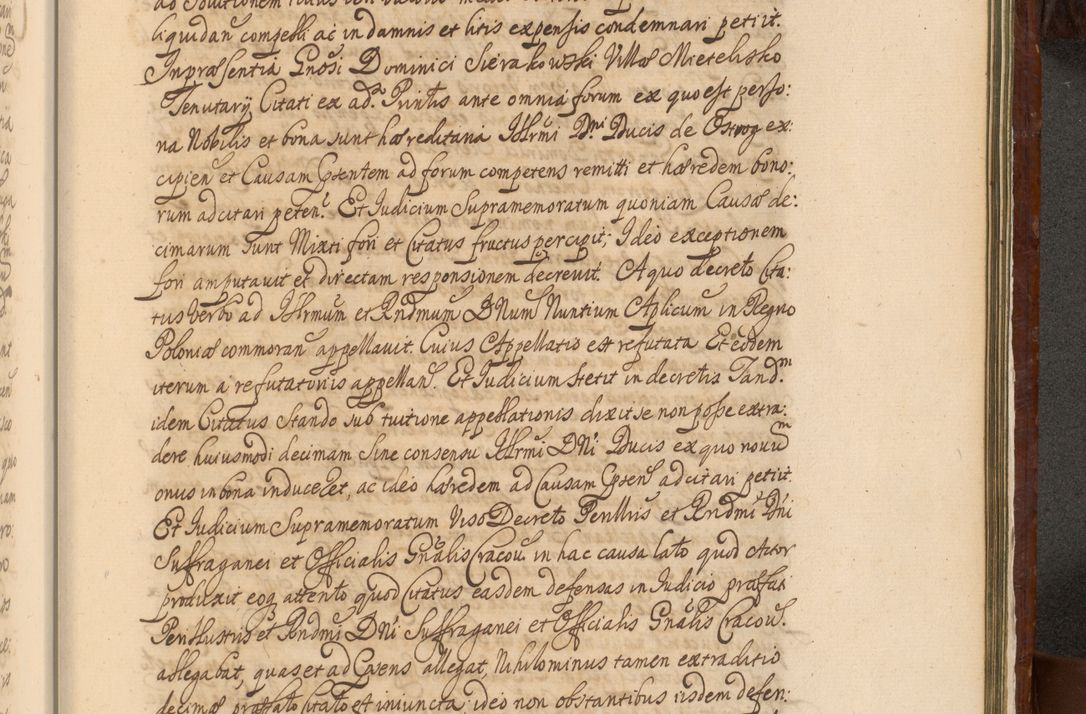 liquidan̄ compelli ac in damnis et litis expensis condemnari petiit.
In præsentia Gnosi Dominici Sierakowski Villæ Mietelisko
Tenutarÿ Citati ex ad.ᵃ Puntis ante omnia forum ex quo est perso:
na Nobilis et bona sunt hæreditaria Illrmi Dni Ducis de Ostrog ex:
cipien et Causam Gsentem ad forum competens remitti et hæredem bono:
rum adcitari peten. Et Judicium Supramemoratum quoniam Causæ de:
cimarum sunt Mixti fori et Citatus fructus percipit; Ideo exceptionem
fori amputavit et directam responsionem decrevit. A quo decreto Cita:
tus verbo ad Illrmum et Rndmum DNum Nuntium Aplicum in Regno
Poloniæ commoran appellavit. Cuius Appellatio est refutata Et eodem
iterum a refutatoriis appellan. Et Judicium stetit in decretis Tandm
idem Citatus stando sub tuitione appellationis dixit se non posse extra:
dere huiusmodi decimam sine consensu Illrmi DNi Ducis ex quo novum
onus in bona induceret, ac ideo hæredem ad Causam Gsen adcitari petiit.
Et Judicium Supramemoratum Viso Decreto Perillris et Rndmi Dni
Suffraganei et Officialis Gnalis Cracov. in hac causa lato quod Actor
produxit eoq attento quod Citatus easdem defensas in Judicio præfati
Perillustris et Rndmi DNi Suffraganei et Officialis Gnalis Cracov.
allegabat, quas et ad Gsens allegat, Nihilominus tamen extraditio
decimæ præfato Citato et iniuncta ideo non obstantibus iisdem defen: